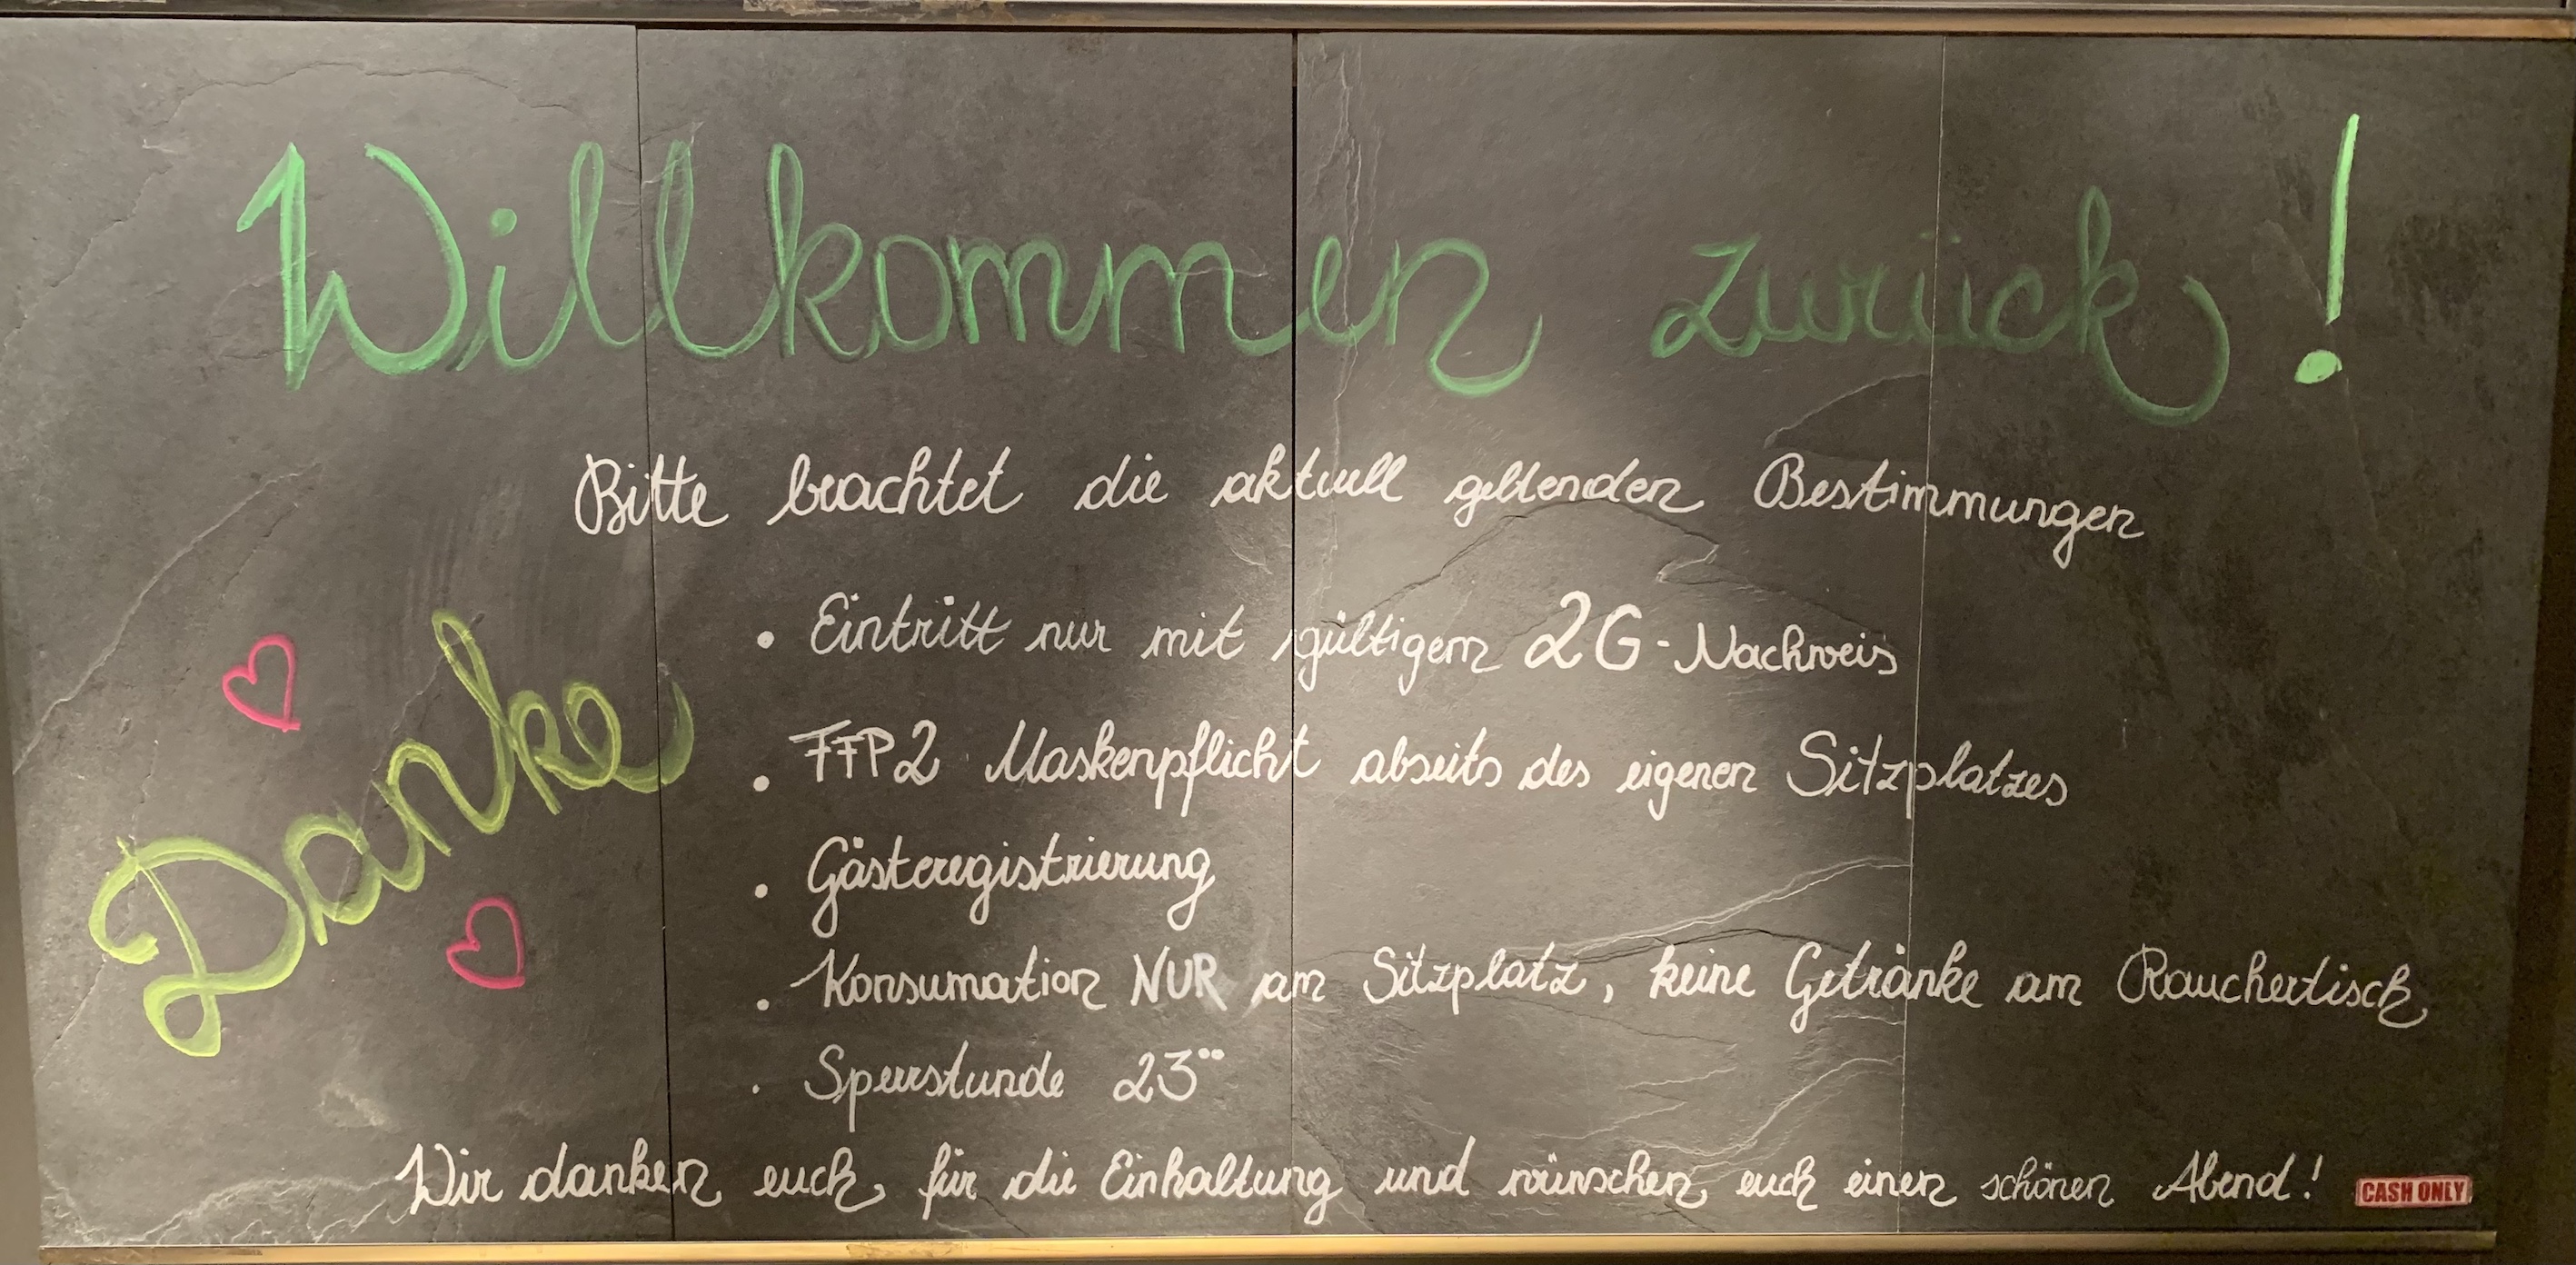 Willkommen zurück!
Bitte beachtet die aktuell geltenden Bestimmungen
• Eintritt nur mit gültigem 2G-Nachweis
• FFP2 Maskenpflicht abseits des eigenen Sitzplatzes
• Gästeregistrierung
• Konsumation NUR am Sitzplatz, keine Getränke am Rauchertisch
• Sperrstunde 23°°
Danke
Wir danken euch für die Einhaltung und wünschen euch einen schönen Abend!
CASH ONLY